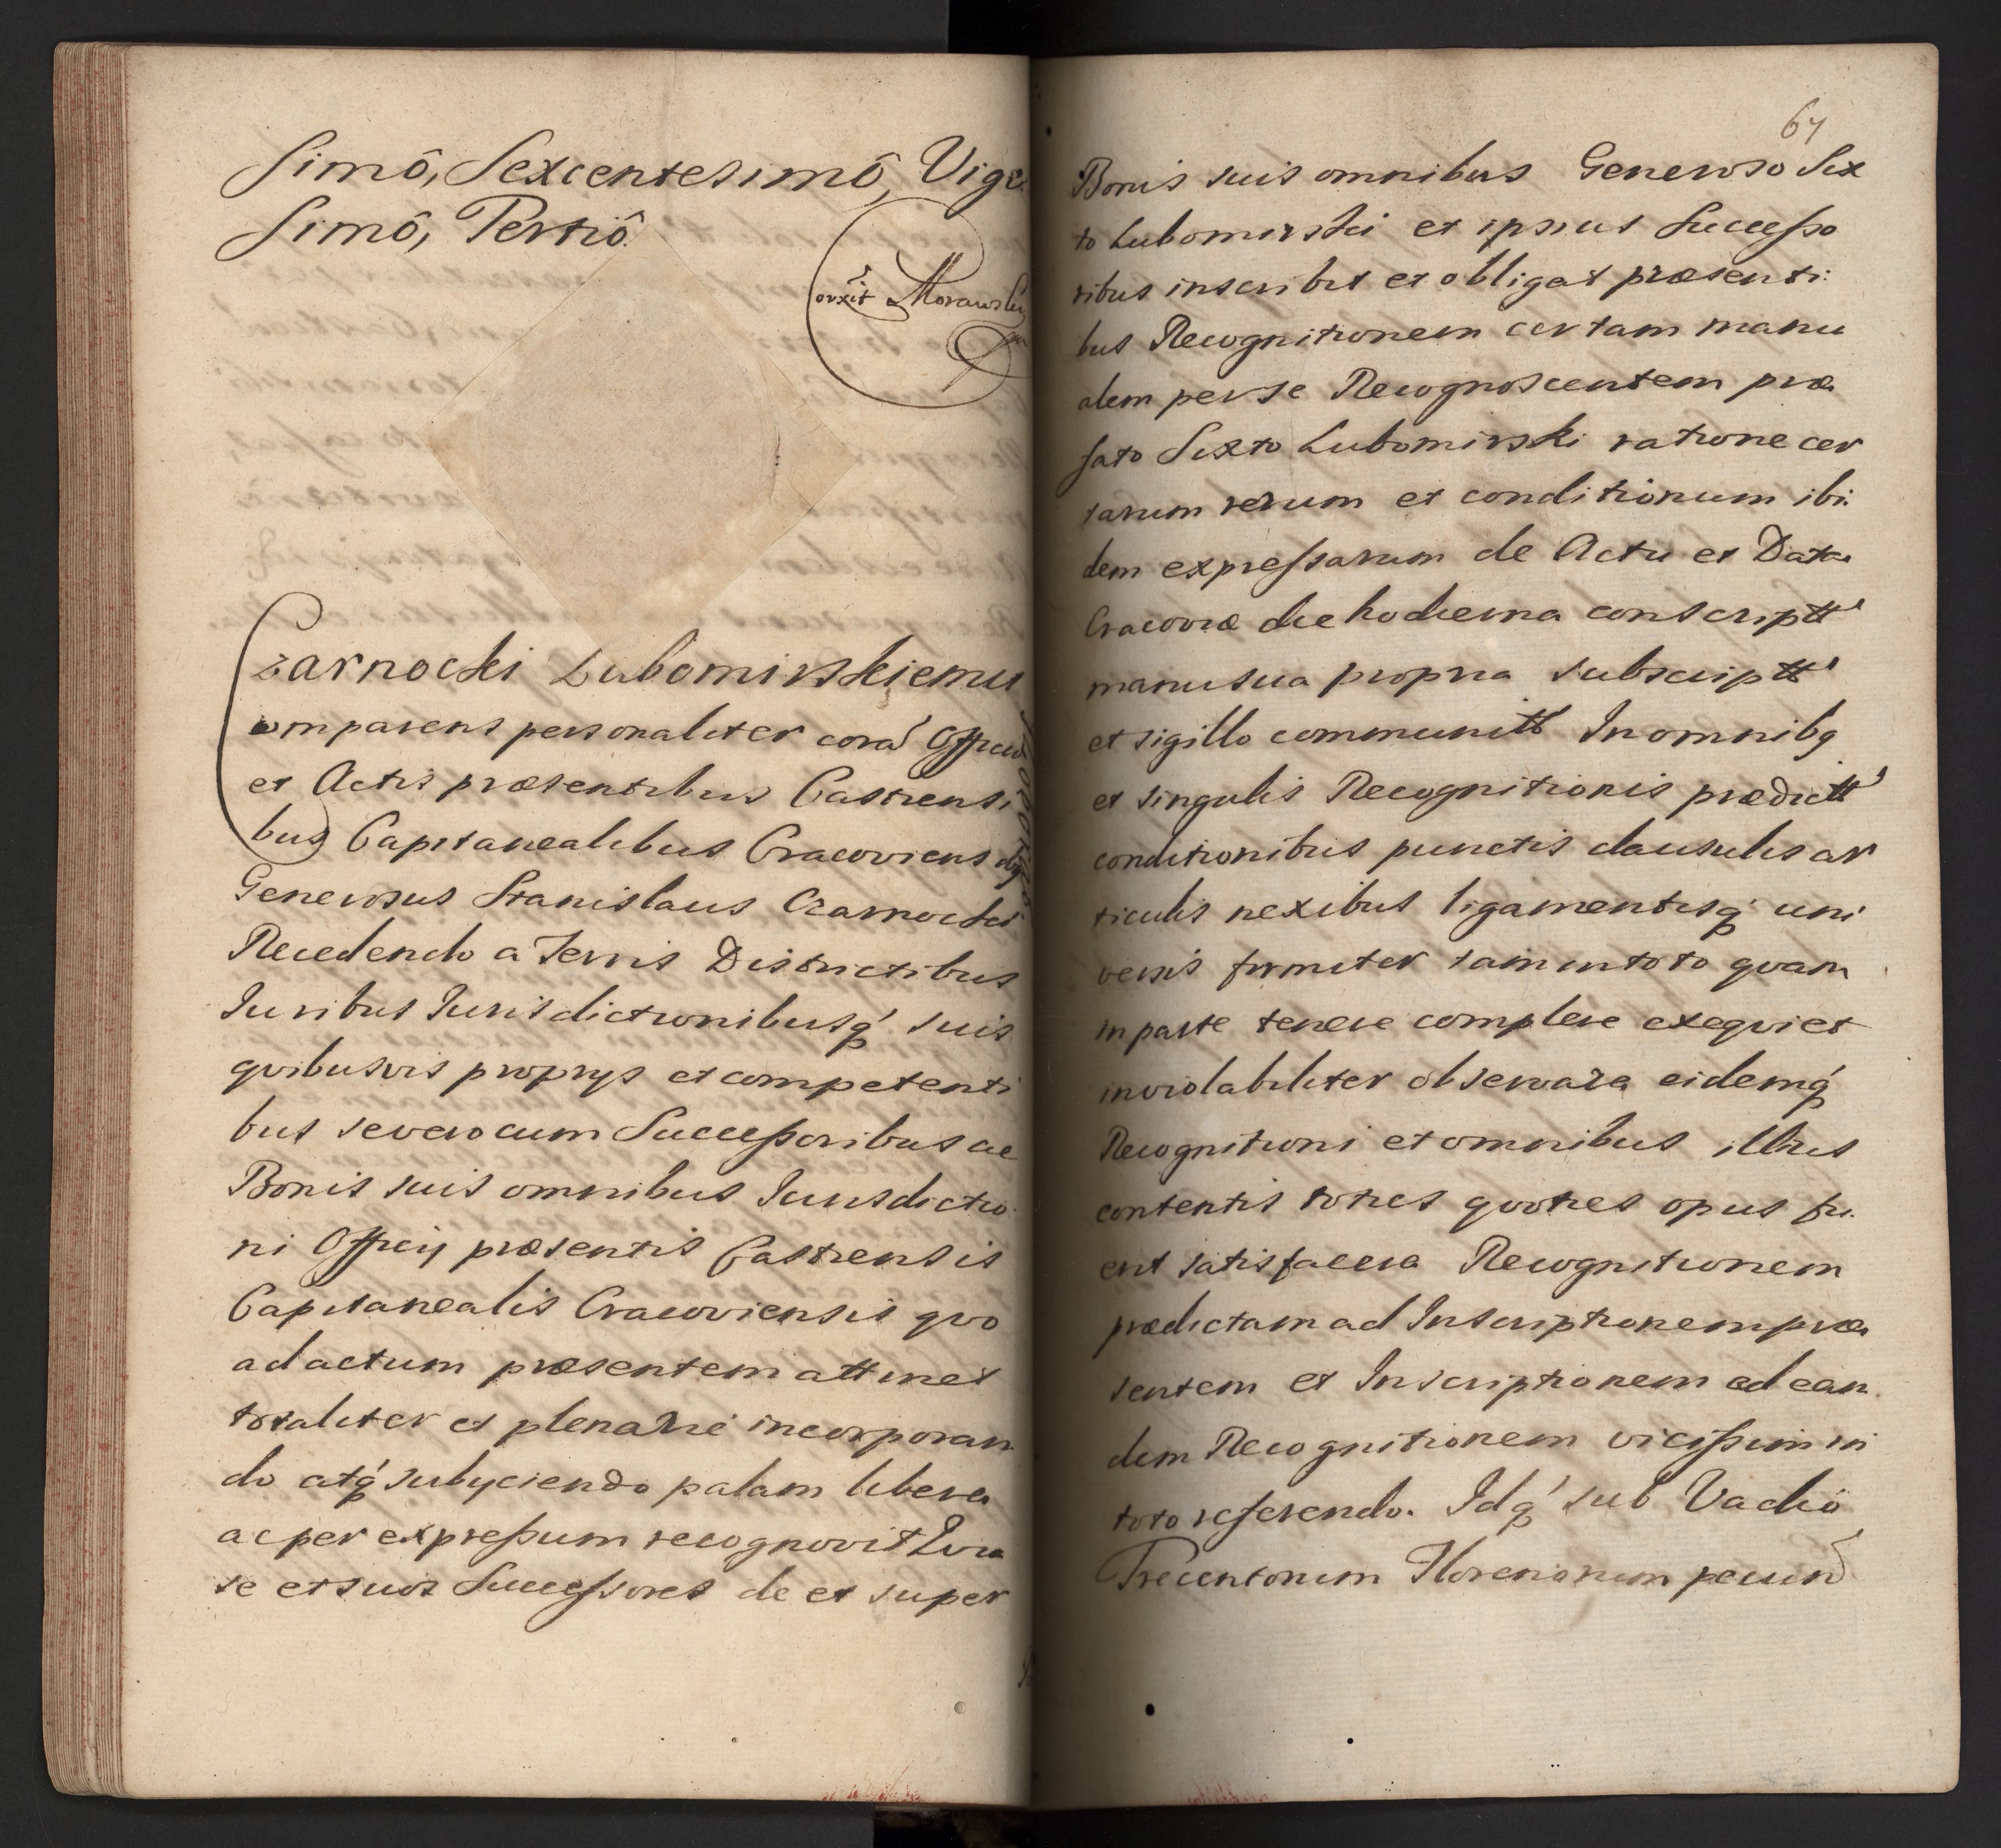 simô, Sexcentesimô, Vige
simô, Tertiô.
Morawsky
Czarnocki Lubomirskiemu
comparens personaliter cora Officio
et Actis præsentibus Castrensi
bus Capitanealibus Cracoviens
Generosus Stanislaus Czarnocki
Recedendo a Terris Districtibus
Juribus Jurisdictionibusq́ suis
qvibusvis proprys et competenti
bus se vero cum Successoribus ac
Bonis suis omnibus Jurisdictio
ni Officy præsentis Castrensis
Capitanealis Cracoviensis qvo
ad actum præsentem attinet
totaliter et plenarie incorporan
do atq́ subyciendo palam libere
ac per expressum recognovit Qvia
se et suos Successores de et super
67
Bonis suis omnibus Generoso Six
to Lubomirski et ipsius Successo
ribus inscribit et obligat præsenti:
bus Recognitionem certam manu
alem per se Recognoscentem præ
fato Sixto Lubomirski ratione cer
tarum rerum et conditionum ibi:
dem expressarum de Actu et Data
Cracoviæ die hodierna conscriptt
manu sua propria subscriptt
et sigillo communitt In omnibq
et singulis Recognitionis prædictt
conditionibus punctis clausulis ar
ticulis nexibus ligamentisq́ uni
versis firmiter tam in toto qvam
in parte tenere complere exeqvi et
inviolabiliter observare eidemq́
Recognitioni et omnibus illius
contentis toties qvoties opus fu
erit satisfacere Recognitionem
prædictam ad Inscriptionem præ
sentem et Inscriptionem ad ean
dem Recognitionem vicissim in
toto referendo. Idq́ sub Vadio
Trecentorum Florenorum pecun